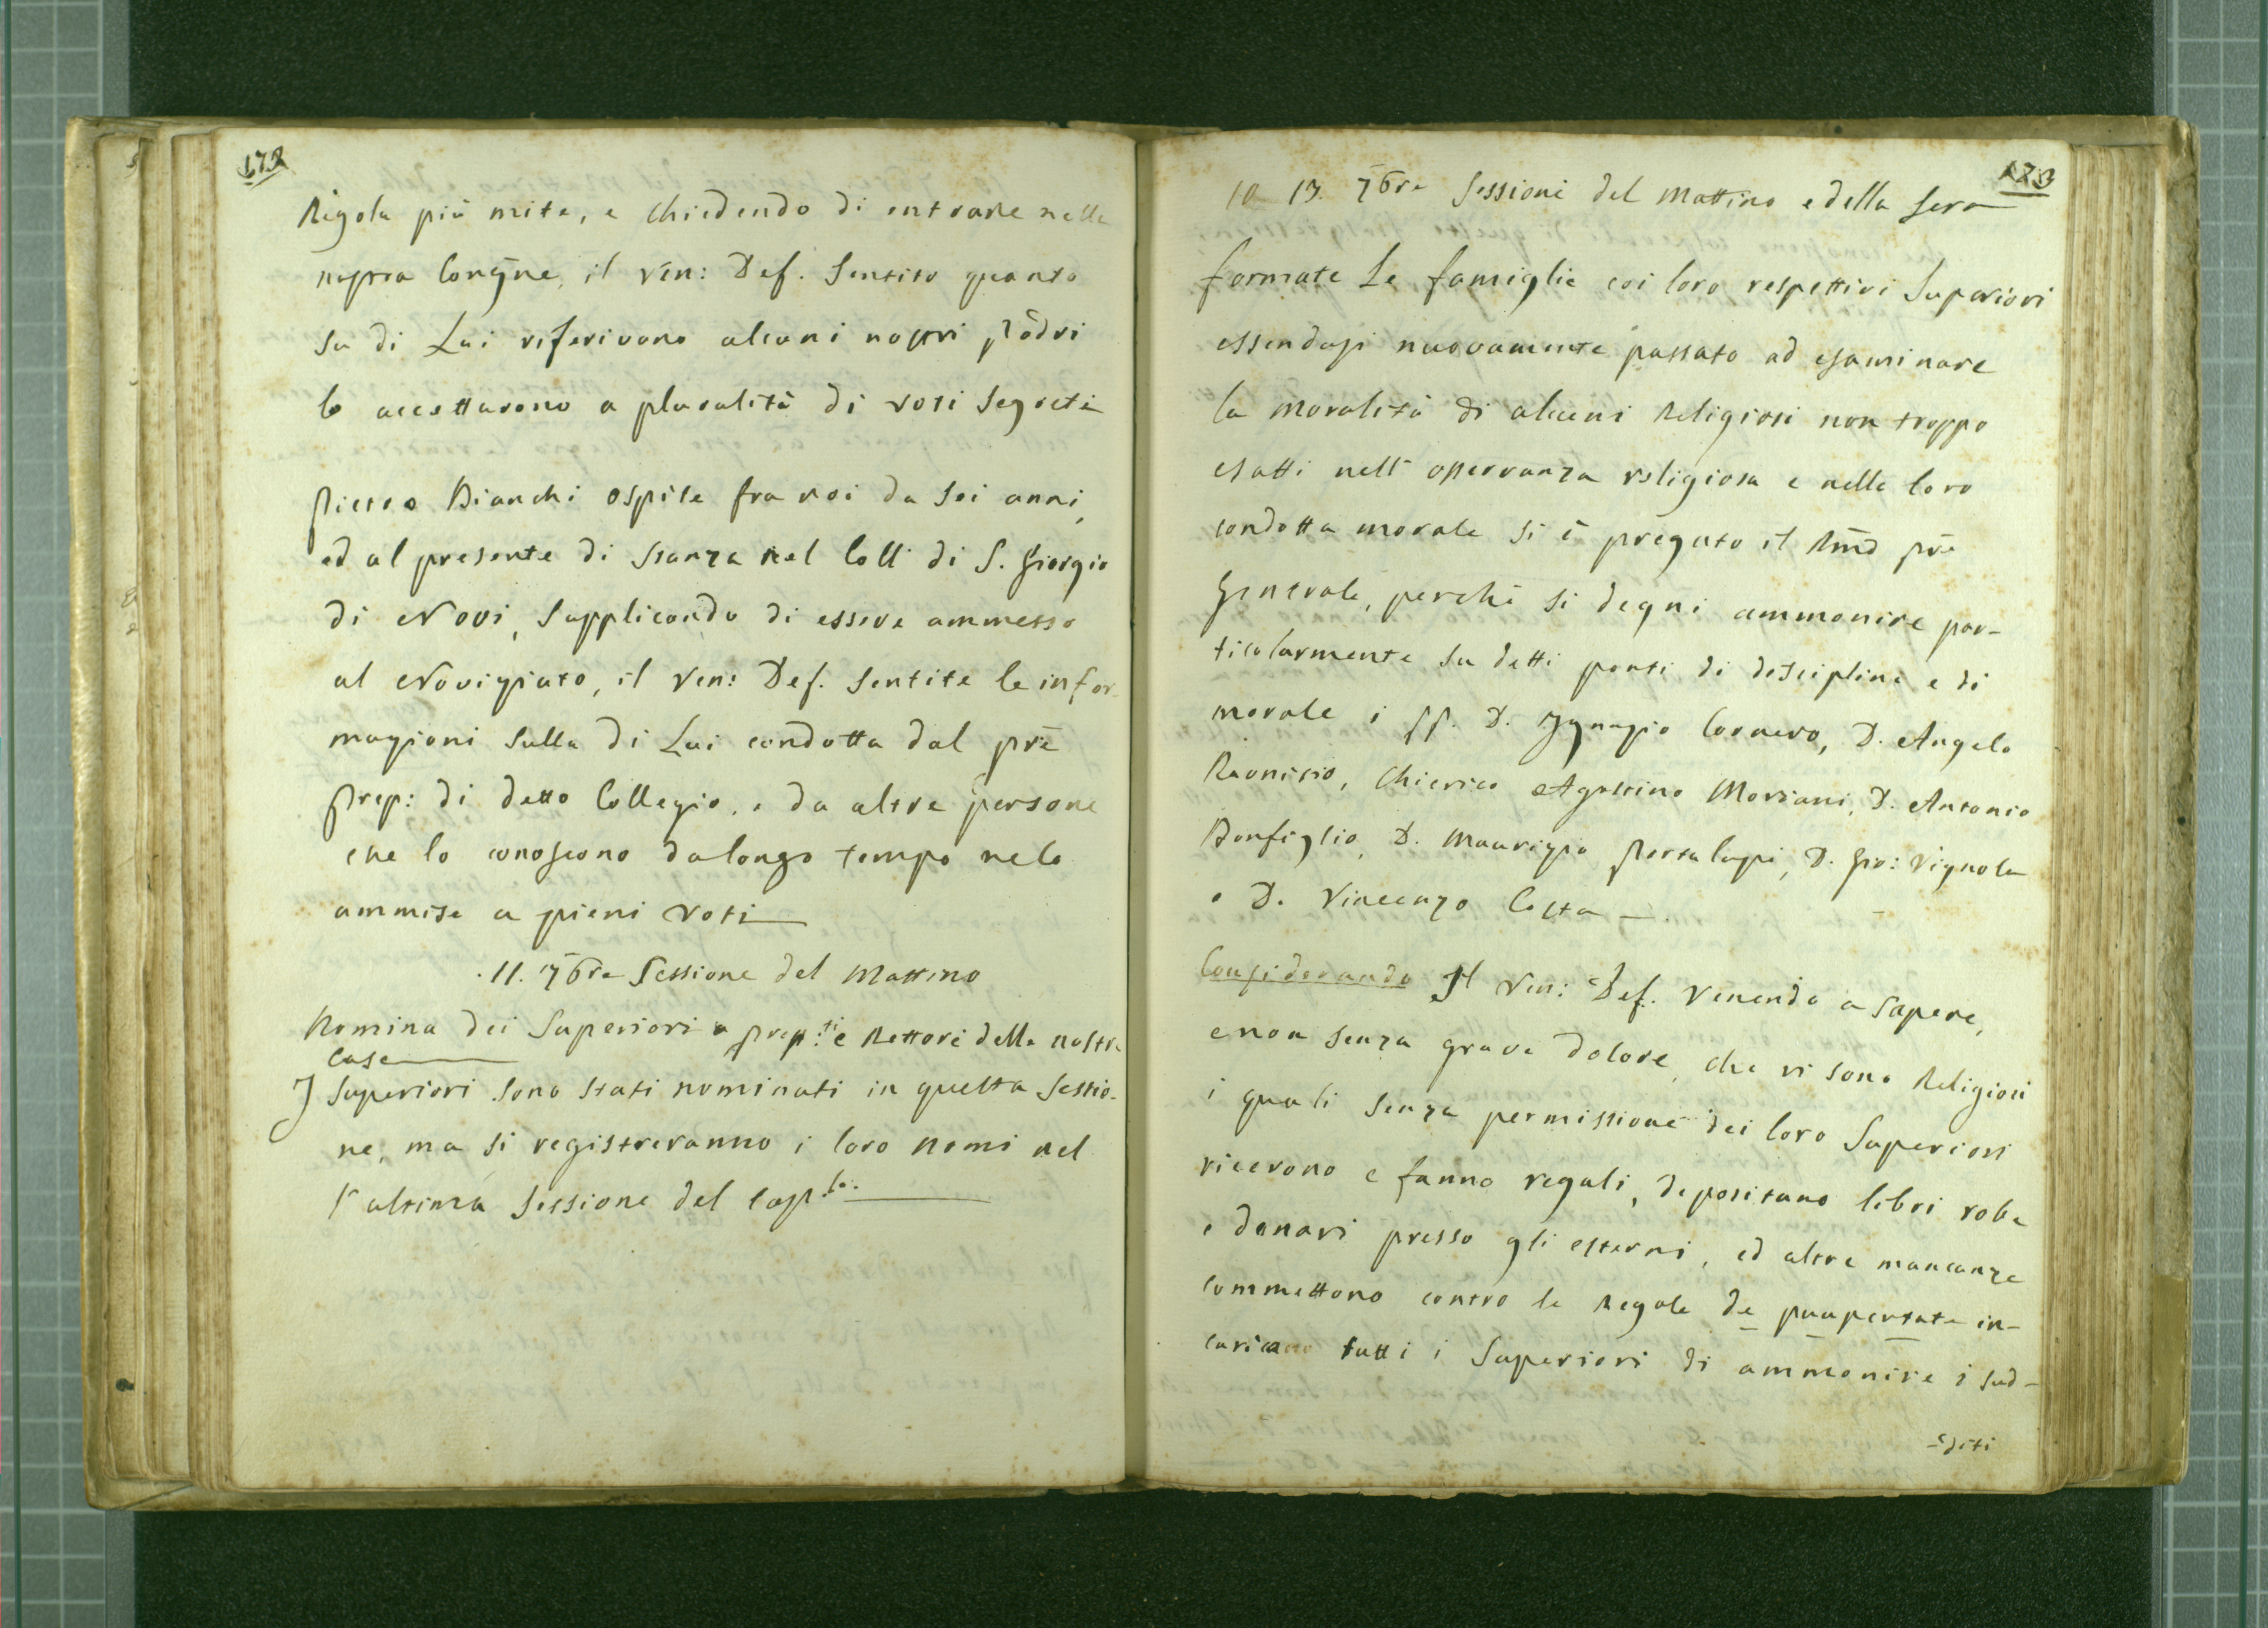 172
Regola più mite, e chiedendo di entrare nella
nostra Congñe, il Vēn: Def. Sentito quanto
su di Lui riferivono alcuni nostri Pādri
lo accettarono a pluralità di voti segreti
Pietro Bianchi ospite fra noi da sei anni,
ed al presente di stanza nel Coll. di S. Giorgio
di Novi, supplicando di essere ammesso
al Novigiato, il Ven: Def. sentite le infor-
magioni sulla di Lui condotta dal Prē
Prep: di detto Collegio, e da altre persone
che lo conoscono da longo tempo ne lo
ammise a pieni voti
.11. 7bre Sessione del Mattino
Nomina dei Superiori o Prep:ti e Rettori delle nostre
Case
I Superiori sono stati nominati in questa sessio-
ne, ma si registreranno i loro nomi nel
l'altima sessione del cap.lo:
173
13. 7bre Sessioni del Mattino e della sera
formate Le famiglie coi loro respettivi Superiori
essendosi nuovamente passato ad esaminare
la moralità di alcuni Religiosi non troppo
esatti nell' osservanza religiosa e nella loro
condotta morale si è pregato il Rm̄o Prē
Generale, perchè si degni ammonire par-
ticolarmente su detti ponti di disciplina e di
morale i PP. D. Ignazio Cornero, D. Angelo
Chierico Agostino Moriani, D. Antonio
Bonfiglio, D. Maurizio Portalupi, D. Gio: Vignola
e D. Vincenzo Costa
Considerando Il Ven: Def. Venendo a sapere,
e non senza grave dolore, che vi sono Religiosi
i quali senza permissione dei loro Superiori
ricevono e fanno regali, depositano libri robe
e danari presso gli esterni, ed altre mancanze
commettono contro le Regole de paupertate in-
caricano tutti i Superiori di ammonire i sud-
-diti